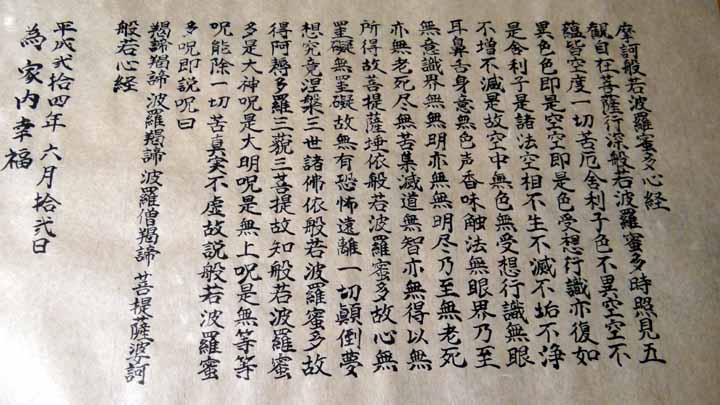 摩訶般若波羅蜜多心経
観自在菩薩行深般若波羅蜜多時照見五
蘊皆空度一切苦厄舎利子色不異空空不
異色色即是空空即是色受想行識亦復如
是舎利子是諸法空相不生不滅不垢不浄
不増不減是故空中無色無受想行識無眼
耳鼻舌身意無色声香味触法無眼界乃至
無意識界無無明亦無無明尽乃至無老死
亦無老死尽無苦集滅道無智亦無得以無
所得故菩提薩埵依般若波羅蜜多故心無
罣礙無罣礙故無有恐怖遠離一切顛倒夢
想究竟涅槃三世諸佛依般若波羅蜜多故
得阿耨多羅三藐三菩提故知般若波羅蜜
多是大神呪是大明呪是無上呪是無等等
呪能除一切苦真実不虚故説般若波羅蜜
多呪即説呪曰
羯諦羯諦 波羅羯諦 波羅僧羯諦 菩提薩婆訶
般若心経
平成弐拾四年 六月拾弐日
為家内幸福